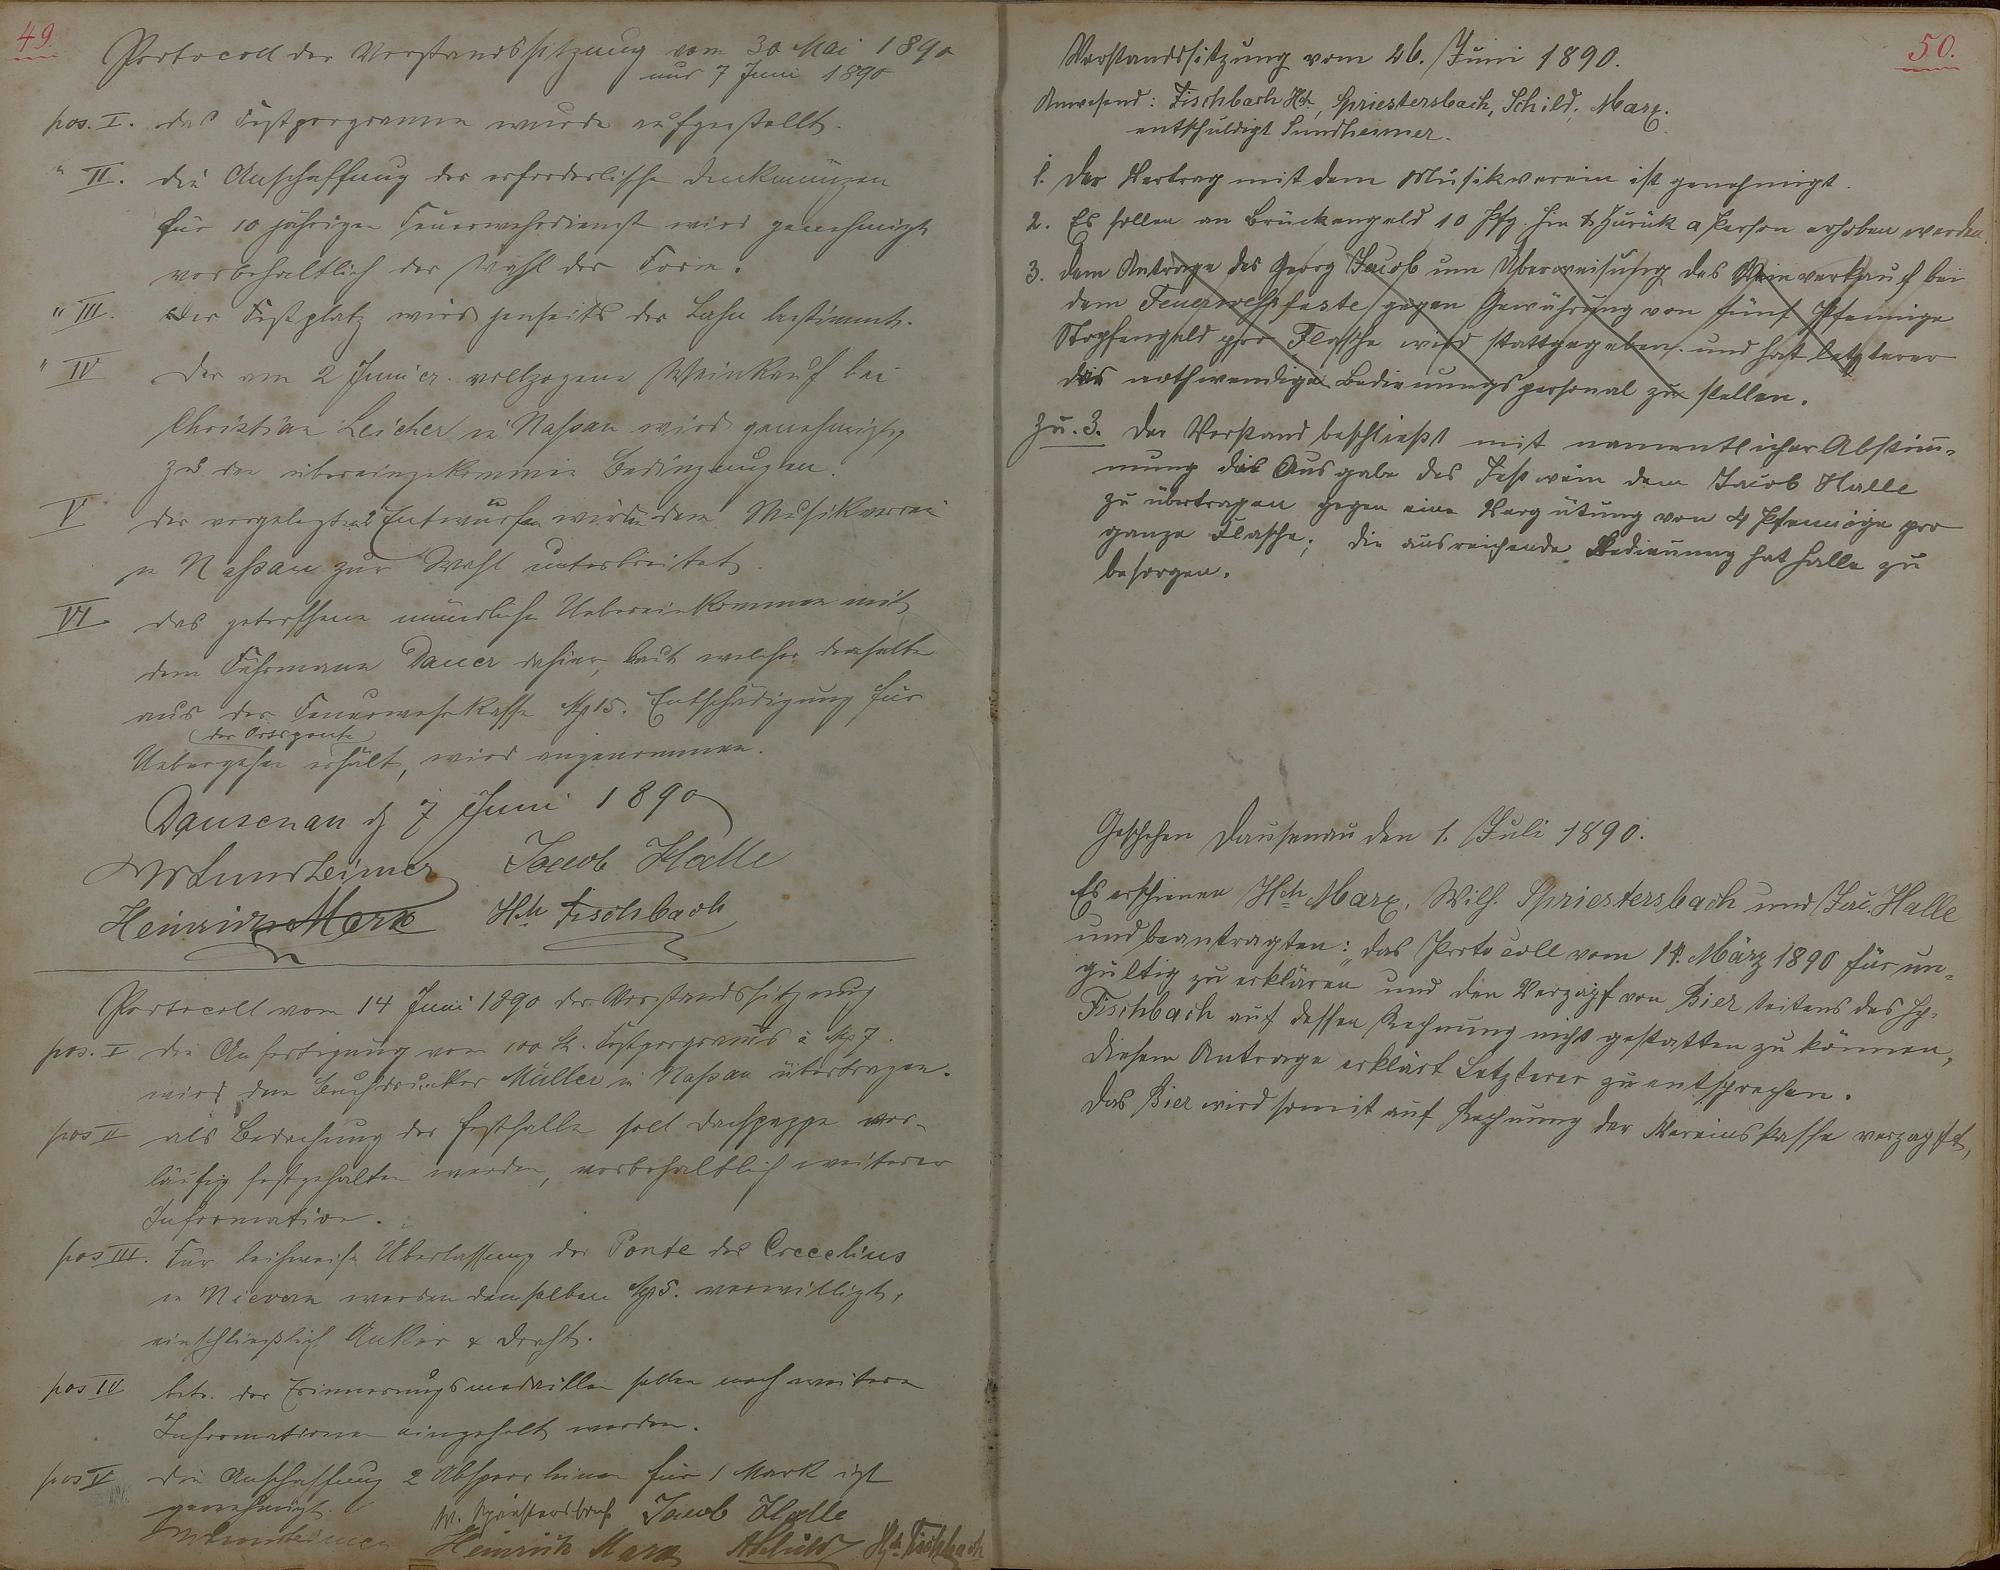 49.
Protocoll der Vorstandssitzung vom 30 Mai 1890
und 7 Juni 1890
pos. I. das Festprogramm wurde aufgestellt.
" II. die Anschaffung der erforderlische Denkmünzen
für 10 jährigen Feuerwehrdienst wird genehmigt
vorbehaltlich der Wahl der Form.
" III. Der Festplatz wird jenseits der Lahn bestimmt.
" IV Der am 2 Juni cr. vollzogene Weinkauf bei
Christian Leicher in Naßau wird genehmigt,
zu den übereingekommen Bedingungen.
V der vorgelegten 2 Entwürfen wird dem Musikverein
in Naßau zur Wahl unterbreitet.
VI das getroffene mündliche Uebereinkommen mit
dem Fuhrmann Dauer dahier, laut welcher derselbe
aus der Feuerwehrkasse M 15. Entschädigung für
der Ortsponte
Uebergehen erhält, wird angenommen.
Dausenau d 7 Juni 1890
W Sundheimer Jacob Halle
Heinrich Marx Hch Fischbach
Protocoll vom 14 Juni 1890 der Vorstandssitzung
pos. I die Anfertigung von 100 St. Festprogramms à M 7.
wird dem Buchdrucker Müller in Naßau übertragen.
pos II als Bedachung der Festhalle soll Dachpappe vor-
läufig festgehalten werden, vorbehaltlich weiterer
Information.
pos III. Für leihweise Überlassung der Ponte des Crecelius
in Nievern werden demselben M 5. verwilligt,
einschließlich Anker & Draht.
pos IV betr. der Erinnerungsmedaillen sollen noch weitere
Informationen eingeholt werden.
pos V die Anschaffung 2 Absperrleinen für 1 Mark ist
genehmigt.
W. Spriestersbach Jacob Halle
W Sundheimer Heinrich Marx A Schild Hch. Fischbach
50.
Vorstandssitzung vom 26. Juni 1890.
Anwesend: Fischbach Hch, Spriestersbach, Schild, Marx.
entschuldigt Sundheimer.
1. Der Vertrag mit dem Musikverein ist genehmigt.
2. Es sollen an Brückengeld 10 Pfg. hin & zurük a Person erhoben werden.
3. Dem Antrage des Georg Jacob um Überweisung des Weinverkauf bei
dem Feuerwehrfeste gegen Gewährung von fünf Pfennige
Stopfengeld pro Flasche wird stattgegeben. und hat letzterer
das nothwendige Bedienungspersonal zu stellen.
Zu. 3. Der Vorstand beschließt mit namentlicher Abstim-
mung die Ausgabe des Festwein dem Jacob Halle
zu übertragen gegen eine Vergütung von 4 Pfennige pro
ganze Flasche; die ausreichende Bedienung hat Halle zu
besorgen.
Geschehen Dausenau den 1. Juli 1890.
Es erschienen Hch Marx, Wilh. Spriestersbach und Jac. Halle
und beantragten: das Protocoll vom 14. März 1890 für un-
gültig zu erklären und den Verzapf von Bier seitens des Hh.
Fischbach auf dessen Rechnung nicht gestatten zu können,
diesem Antrage erklärt Letzterer zu entsprechen.
Das Bier wird somit auf Rechnung der Vereinskasse verzapft,